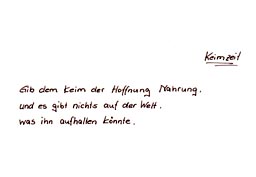 Keimzeit
Gib dem Keim der Hoffnung Nahrung.
und es gibt nichts auf der Welt.
was ihn aufhalten könnte.